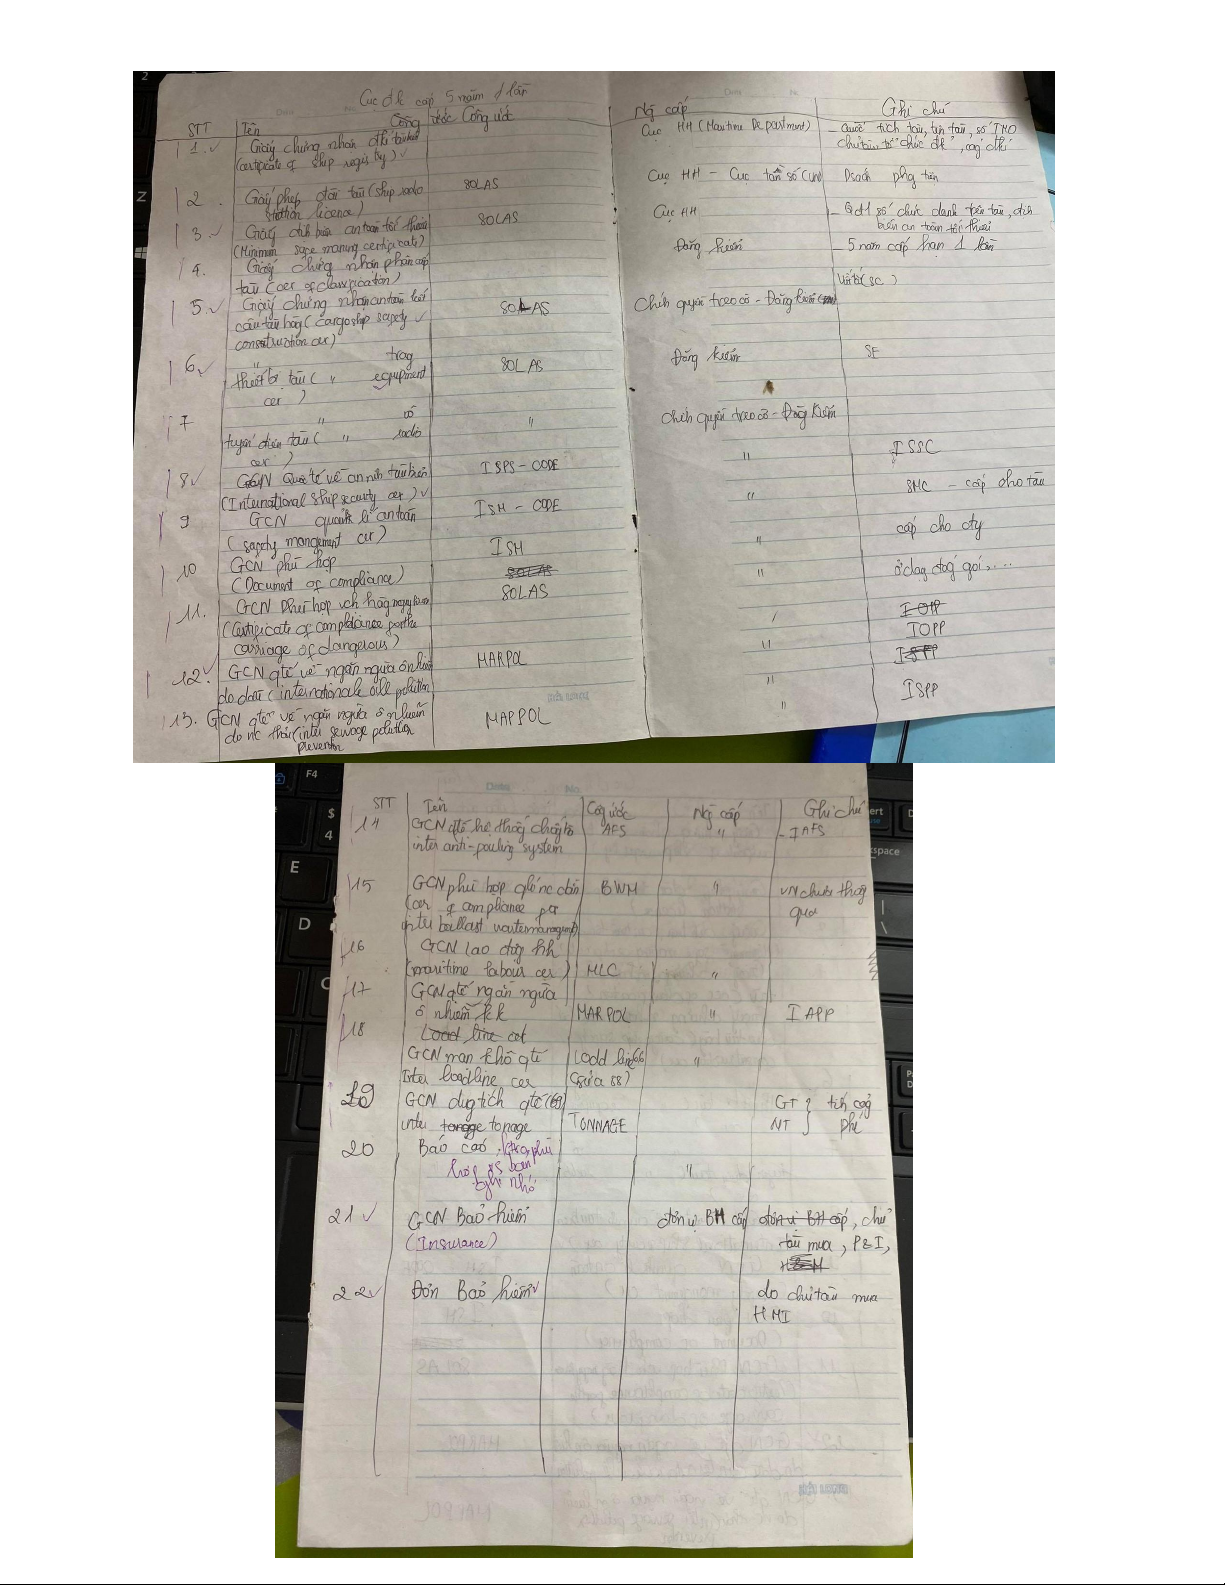 Cục đk cấp 5 năm 1 lần
STT Tên Công ước
1. Giấy chứng nhận đkí tàu biển
(certificate of ship registry)
2. Giấy phép đài tàu (ship radio SOLAS
station licence)
3. Giấy định biên an toàn tối thiểu SOLAS
(Minimum safe maning certificate)
4. Giấy chứng nhận phân cấp
tàu (cer of classification)
5. Giấy chứng nhận an toàn kết
cấu tàu hàg (cargo ship safety SOLAS
construction cer)
6. " trag
thiết bị tàu ( " equipment SOLAS
cer )
7 " vô "
tuyến điện tàu ( " radio
cer )
8 GCN Quốc tế về an ninh tàu biển ISPS - CODE
(International ship security cer)
9 GCN quản lí an toàn ISM - CODE
(safety mangement cer)
10 GCN phù hợp ISM
(Document of compliance) SOLAS
11. GCN phù hợp vch hàg nguy hiểm SOLAS
(Certificate of compliance for the
carriage of dangerous)
12. GCN qtế về ngăn ngừa ô nhiễm MARPOL
do dầu (internationale oil pollution
13. GCN qtế về ngăn ngừa ô nhiễm MAPPOL
do nc thải (inter sewage pollution
prevention
Ng cấp Ghi chú
Cục HH (Maritime Department) - Quốc tịch tàu, tên tàu, số IMO
chủ tàu, tổ chức đk, cag đkí
Cục HH - Cục tần số Dsách phg tiện
Cục HH - Qđ số chức danh trên tàu, định
biên an toàn tối thiểu
Đăng kiểm - 5 năm cấp hạn 1 lần
(SC)
Chính quyền treo cờ - Đăng kiểm
Đăng kiểm SE
Chính quyền treo cờ - Đăng kiểm
" ISSC
" SMC - cấp cho tàu
" cấp cho cty
" ở dạg đóg gói,....
IOPP
IOPP
"
" ISPP
"
STT Tên Côg ước Ng cấp Ghi chú
14 GCN qtế hệ thốg chốg hà AFS " - IAFS
inter anti-fouling system
15 GCN phù hợp qlí nc dằn BWM " VN chưa thôg
(cer of compliance for qua
inter ballast water management)
16 GCN lao độg hh
(maritime labour cer) MLC "
17 GCN qtế ngăn ngừa
ô nhiễm kk MARPOL " IAPP
18 Load line cet
GCN mạn khô qtế Lodd line 66 "
Inter loadline cer (sửa 88)
19 GCN dug tích qtế (69) GT } tính cag
inter tonage tonage TONNAGE NT phí
20 Báo cáo
hợp bản "
ghi nhớ
21 GCN Bảo hiểm đơn vị BH cấp đơn vị BH cấp, chủ
(Insurance) tàu mua, P&I,
H&M
22 Đơn Bảo hiểm do chủ tàu mua
HMI